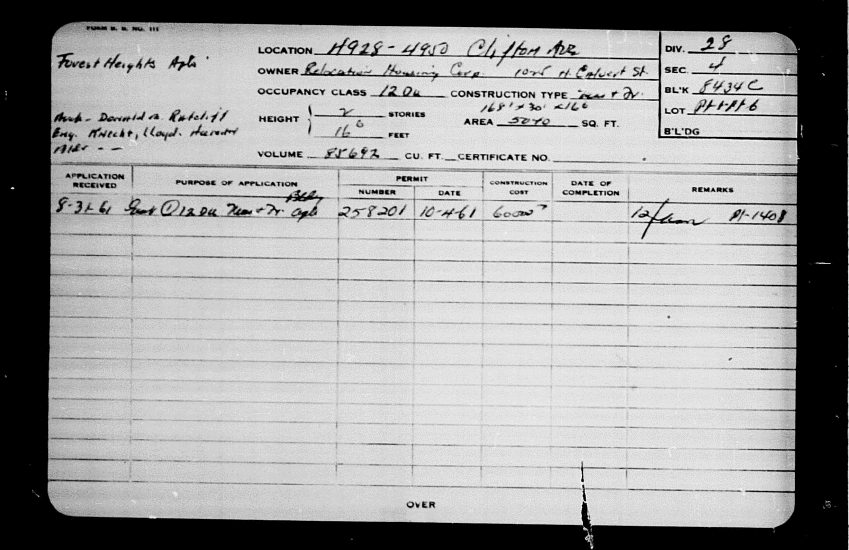 FORM B. N. NO. 111
Forest Heights Apts
LOCATION 4928-4950 Clifton Ave
OWNER Relocation Housing Corp. 1025 N. Calvert St.
OCCUPANCY CLASS 12 Du CONSTRUCTION TYPE Mas + Fr.
Arch - Donald M. Ratcliff
Eng. Knecht, Lloyd.
HEIGHT 2 STORIES
16⁶ FEET
168' x 30' x 16⁶
AREA 5040 SQ. FT.
VOLUME 85692 CU. FT. CERTIFICATE NO.
DIV. 28
SEC. 4
BL'K 8434C
LOT
B'L'DG
APPLICATION RECEIVED PURPOSE OF APPLICATION PERMIT NUMBER DATE CONSTRUCTION COST DATE OF COMPLETION REMARKS
Bldg
8-31-61 ① 12 Du Mas + Fr. Apts 258201 10-4-61 60000 P1-1408
OVER